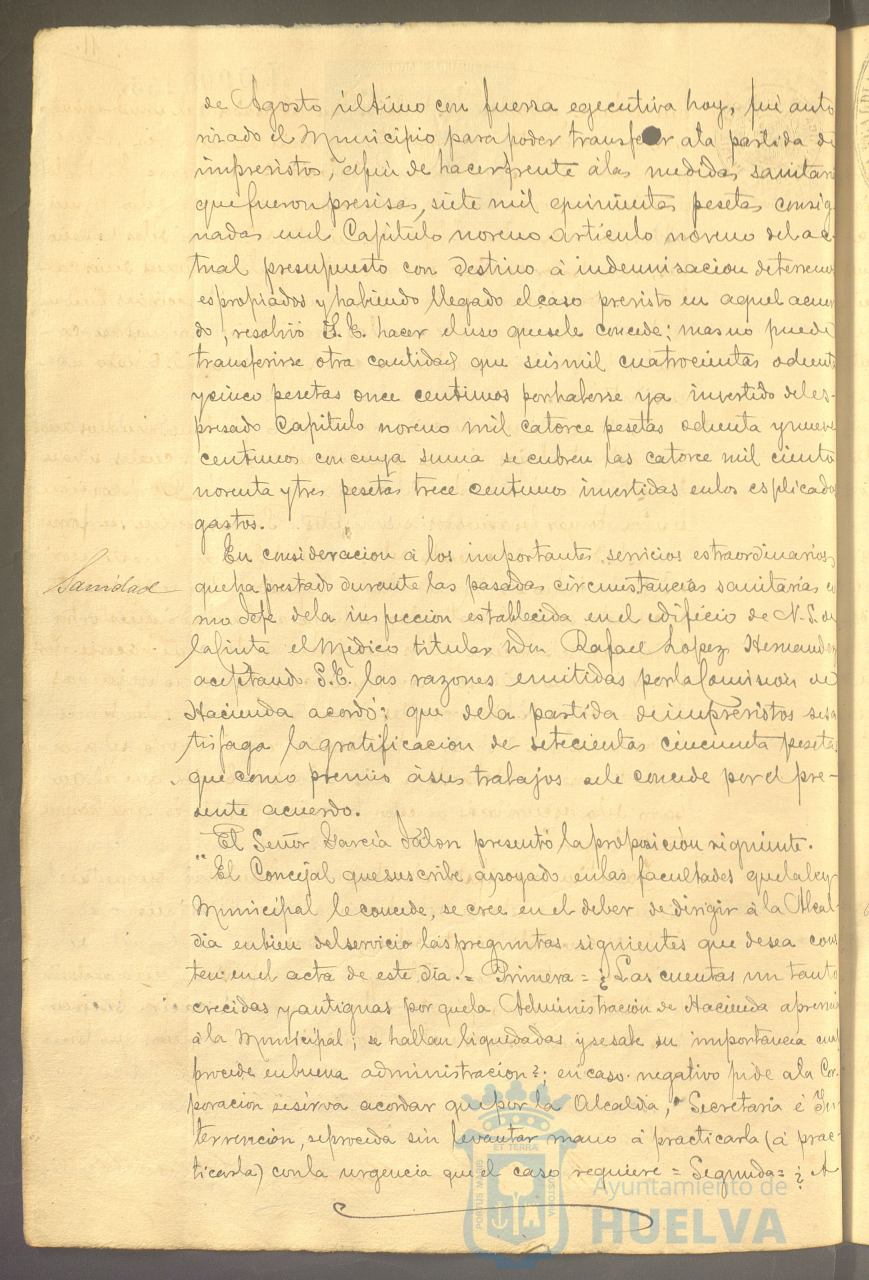 de Agosto último con fuerza egecutiva hoy, fué auto
rizado el Municipio para poder transferir a la partida de
imprevistos, á fin de hacer frente á las medidas sanitari
que fueron presisas, siete mil quinientas pesetas consig
nadas en el Capítulo noveno artículo noveno del ac-
tual presupuesto con destino á indemnisacion de terrenos
espropiados y habiendo llegado el caso previsto en aquel acuer
do, resolvió S.E. hacer el uso que se le concede; mas no puede
transferirse otra cantidad que seis mil cuatrocientas ochent
y cinco pesetas once centimos por haberse ya invertido del es-
presado Capitulo noveno mil catorce pesetas ochenta y nueve
centimos con cuya suma se cubren las catorce mil ciento
noventa y tres pesetas trece centimos invertidas en los esplicados
gastos.
Sanidad
En consideracion á los importantes servicios estraordinarios
que ha prestado durante las pasadas circunstancias sanitarias co
mo Jefe de la inspeccion establecida en el edificio de N. S. de
la Cinta el Médico titular Don Rafael Lopez Hernandez
aceptando S.E. las razones emitidas por la Comision de
Hacienda acordó: que de la partida de imprevistos se sa
tisfaga la gratificacion de setecientas cincuenta pesetas
que como premio á sus trabajos se le concede por el pre-
sente acuerdo.
El Señor Garcia Jalon presentó la proposicion siguiente.
"El Concejal que suscribe apoyado en las facultades que la ley
Municipal le concede, se cree en el deber de dirigir á la Alcal
dia en bien del servicio las preguntas siguientes que desea cons
ten en el acta de este dia. = Primera = ¿Las cuentas un tanto
crecidas y antiguas por que la Administración de Hacienda apremia
á la Municipal; se hallan liquedadas y se sabe su importancia cual
procede en buena administracion?; en caso negativo pide a la Cor
poracion se sirva acordar que por la Alcaldia, Secretaria é In
tervencion, se proceda sin levantar mano á practicarla (á prac-
ticarla) con la urgencia que el caso requiere = Segunda = ¿ A
PORTUS MARIS
ET TERRÆ
CUSTODIA
Ayuntamiento de
HUELVA